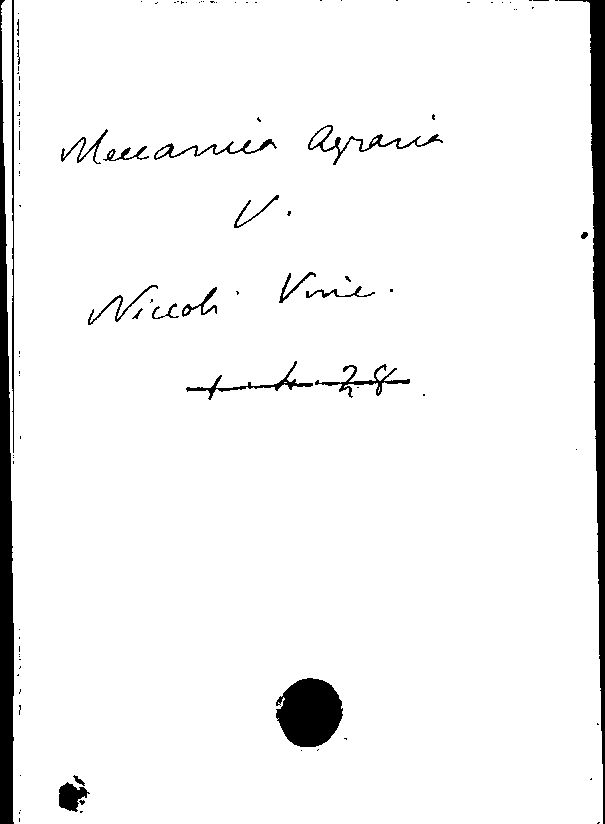 Meccanica Agraria
V.
Niccoli Vinc.
1. 4. 28